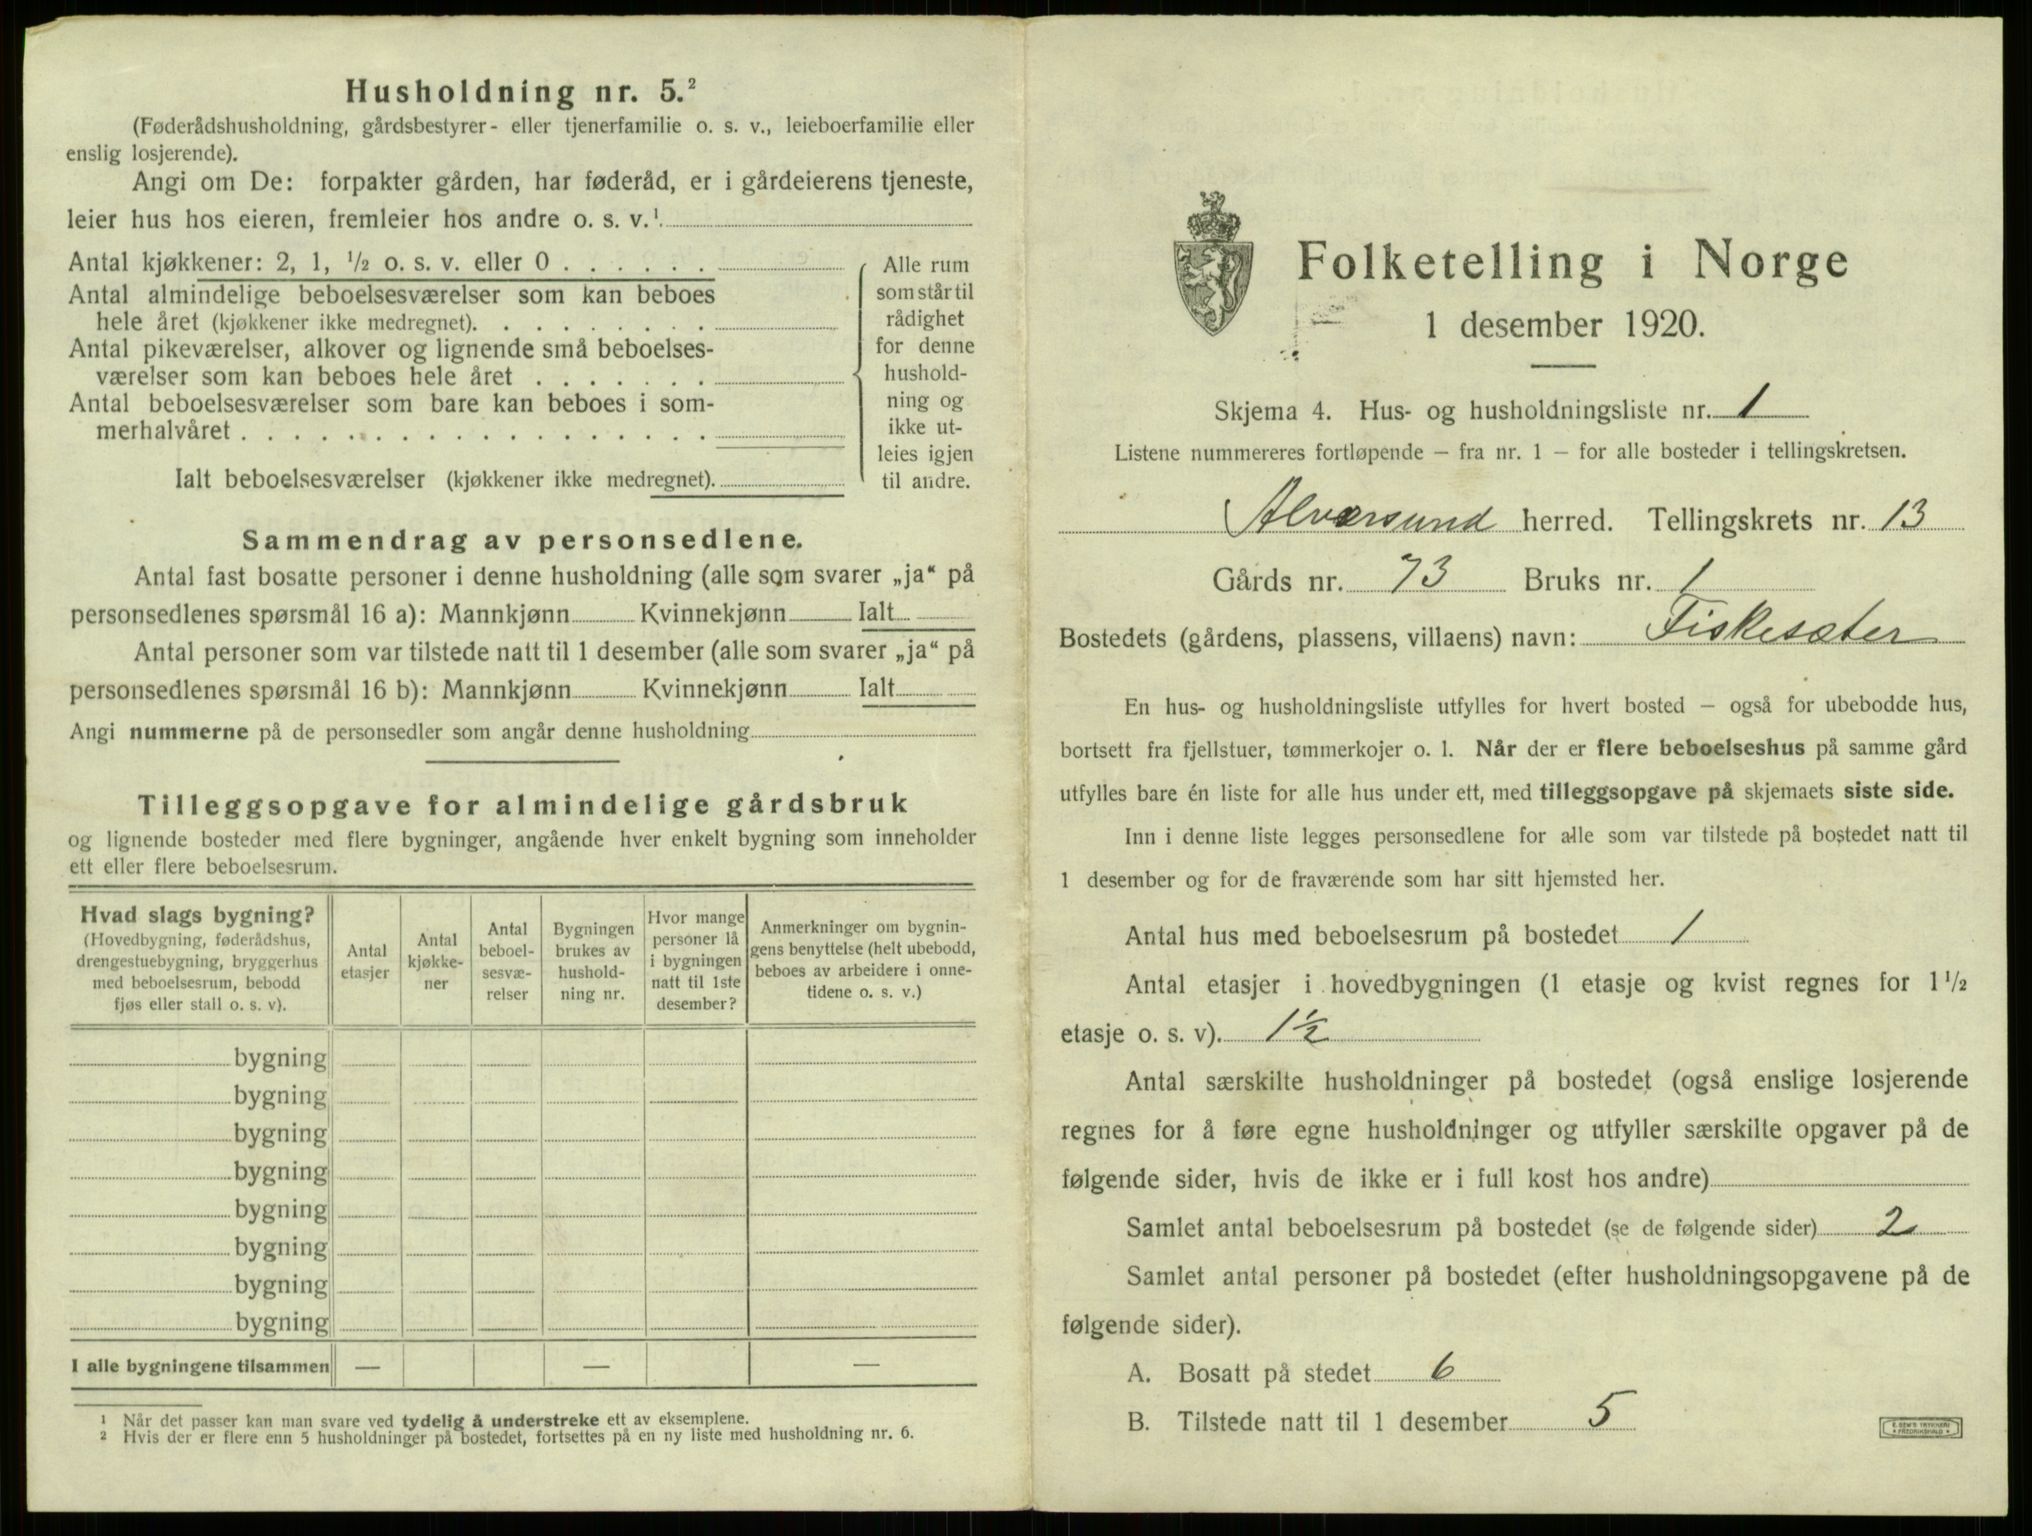 Husholdning nr. 5.²
(Føderådshusholdning, gårdsbestyrer- eller tjenerfamilie o. s. v., leieboerfamilie eller
enslig losjerende).
Angi om De: forpakter gården, har føderåd, er i gårdeierens tjeneste,
leier hus hos eieren, fremleier hos andre o. s. v.¹
Antal kjøkkener: 2, 1, ½ o. s. v. eller 0 . . . . . .
Antal almindelige beboelsesværelser som kan beboes
hele året (kjøkkener ikke medregnet). . . . . . . . .
Antal pikeværelser, alkover og lignende små beboelses-
værelser som kan beboes hele året . . . . . . .
Antal beboelsesværelser som bare kan beboes i som-
merhalvåret . . . . . . . . . . . . . . . . . .
Ialt beboelsesværelser (kjøkkener ikke medregnet).
Alle rum
som står til
rådighet
for denne
hushold-
ning og
ikke ut-
leies igjen
til andre.
Sammendrag av personsedlene.
Antal fast bosatte personer i denne husholdning (alle som svarer „ja“ på
personsedlenes spørsmål 16 a): Mannkjønn Kvinnekjønn Ialt
Antal personer som var tilstede natt til 1 desember (alle som svarer „ja“ på
personsedlenes spørsmål 16 b): Mannkjønn Kvinnekjønn Ialt
Angi nummerne på de personsedler som angår denne husholdning
Tilleggsopgave for almindelige gårdsbruk
og lignende bosteder med flere bygninger, angående hver enkelt bygning som inneholder
ett eller flere beboelsesrum.
Hvad slags bygning?
(Hovedbygning, føderådshus,
drengestuebygning, bryggerhus
med beboelsesrum, bebodd
fjøs eller stall o. s. v).
Antal
etasjer
Antal
kjøkke-
ner
Antal
beboel-
sesvæ-
relser
Bygningen
brukes av
hushold-
ning nr.
Hvor mange
personer lå
i bygningen
natt til 1ste
desember?
Anmerkninger om bygnin-
gens benyttelse (helt ubebodd,
beboes av arbeidere i onne-
tidene o. s. v.)
bygning
bygning
bygning
bygning
bygning
bygning
bygning
bygning
I alle bygningene tilsammen — — —
¹ Når det passer kan man svare ved tydelig å understreke ett av eksemplene.
² Hvis der er flere enn 5 husholdninger på bostedet, fortsettes på en ny liste med husholdning nr. 6.
Folketelling i Norge
1 desember 1920.
Skjema 4. Hus- og husholdningsliste nr. 1
Listene nummereres fortløpende — fra nr. 1 — for alle bosteder i tellingskretsen.
Alversund herred. Tellingskrets nr. 13
Gårds nr. 73 Bruks nr. 1
Bostedets (gårdens, plassens, villaens) navn: Fiskesæter
En hus- og husholdningsliste utfylles for hvert bosted — også for ubebodde hus,
bortsett fra fjellstuer, tømmerkojer o. l. Når der er flere beboelseshus på samme gård
utfylles bare én liste for alle hus under ett, med tilleggsopgave på skjemaets siste side.
Inn i denne liste legges personsedlene for alle som var tilstede på bostedet natt til
1 desember og for de fraværende som har sitt hjemsted her.
Antal hus med beboelsesrum på bostedet 1
Antal etasjer i hovedbygningen (1 etasje og kvist regnes for 1 ½
etasje o. s. v). 1½
Antal særskilte husholdninger på bostedet (også enslige losjerende
regnes for å føre egne husholdninger og utfyller særskilte opgaver på de
følgende sider, hvis de ikke er i full kost hos andre)
Samlet antal beboelsesrum på bostedet (se de følgende sider) 2
Samlet antal personer på bostedet (efter husholdningsopgavene på de
følgende sider).
A. Bosatt på stedet 6
B. Tilstede natt til 1 desember 5
E. SEM'S TRYKKERI
FREDRIKSHALD